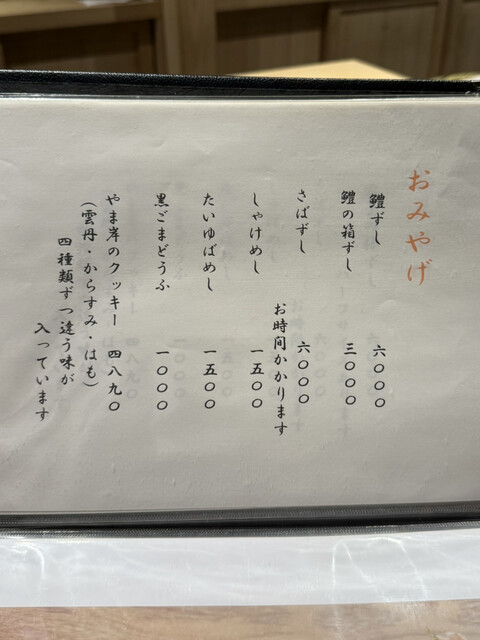 おみやげ
鱧ずし 六〇〇〇
鱧の箱ずし 三〇〇〇
さばずし 六〇〇〇
お時間かかります
しゃけめし 一五〇〇
たいゆばめし 一五〇〇
黒ごまどうふ 一〇〇〇
やま岸のクッキー 四八九〇
（雲丹・からすみ・はも）
四種類ずつ違う味が
入っています